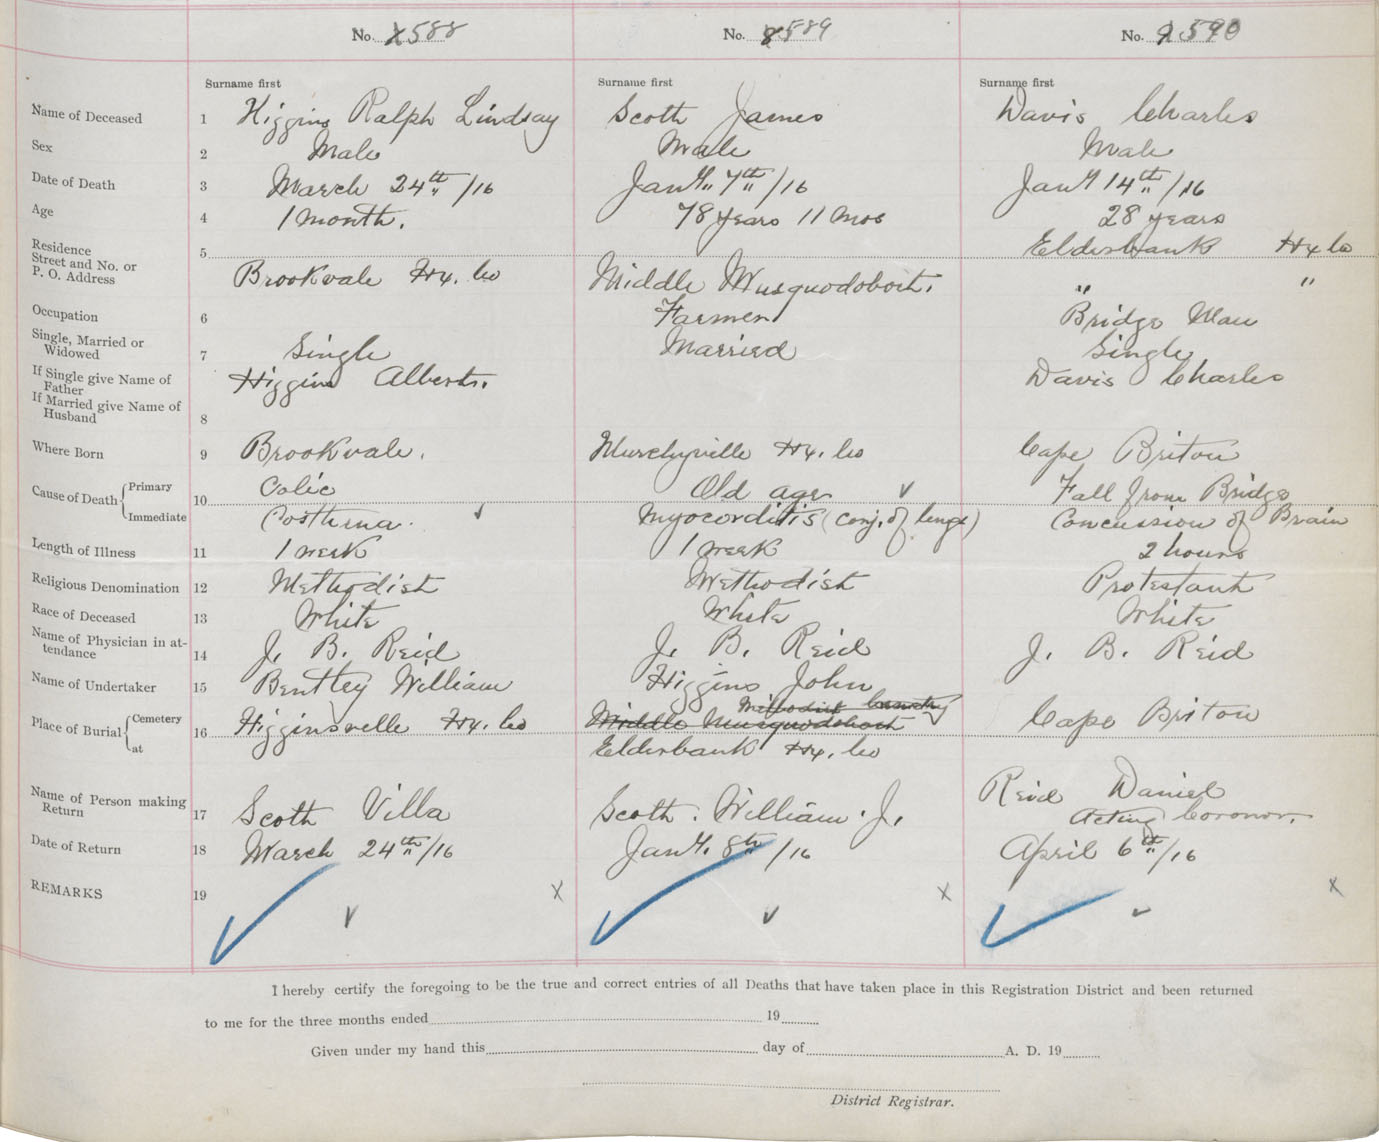 No. 588 No. 589 No. 590
Surname first Surname first Surname first
Name of Deceased 1 Higgins Ralph Lindsay Scott James Davis Charles
Sex 2 Male Male Male
Date of Death 3 March 24th /16 Jany. 7th /16 Jany 14th /16
Age 4 1 month. 78 years 11 mos 28 years
Residence Street and No. or P. O. Address 5 Brookvale Hx. Co Middle Musquodoboit. Elderbank Hx Co
" "
Occupation 6 Farmer Bridge Man
Single, Married or Widowed 7 Single Married Single
If Single give Name of Father Higgins Albert. Davis Charles
If Married give Name of Husband 8
Where Born 9 Brookvale. Murchyville Hx. Co Cape Briton
Cause of Death { Primary Colic Old age Fall from Bridge
10
Immediate myocorditis (conj. of lungs) Concussion of Brain
Length of Illness 11 1 week 1 week 2 hours
Religious Denomination 12 Methodist Methodist Protestant
Race of Deceased 13 White White White
Name of Physician in attendance 14 J. B. Reid J. B. Reid J. B. Reid
Name of Undertaker 15 Bentley William Higgins John
Place of Burial { Cemetery at 16 Higginsville Hx. Co Middle Musquodoboit Methodist Cemetry Cape Briton
Elderbank Hx. Co
Name of Person making Return 17 Scott Villa Scott. William. J. Reid Daniel
Acting Coronor.
Date of Return 18 March 24th /16 Jany. 8th /16 April 6th /16
REMARKS 19 x x x
I hereby certify the foregoing to be the true and correct entries of all Deaths that have taken place in this Registration District and been returned
to me for the three months ended 19
Given under my hand this day of A. D. 19
District Registrar.